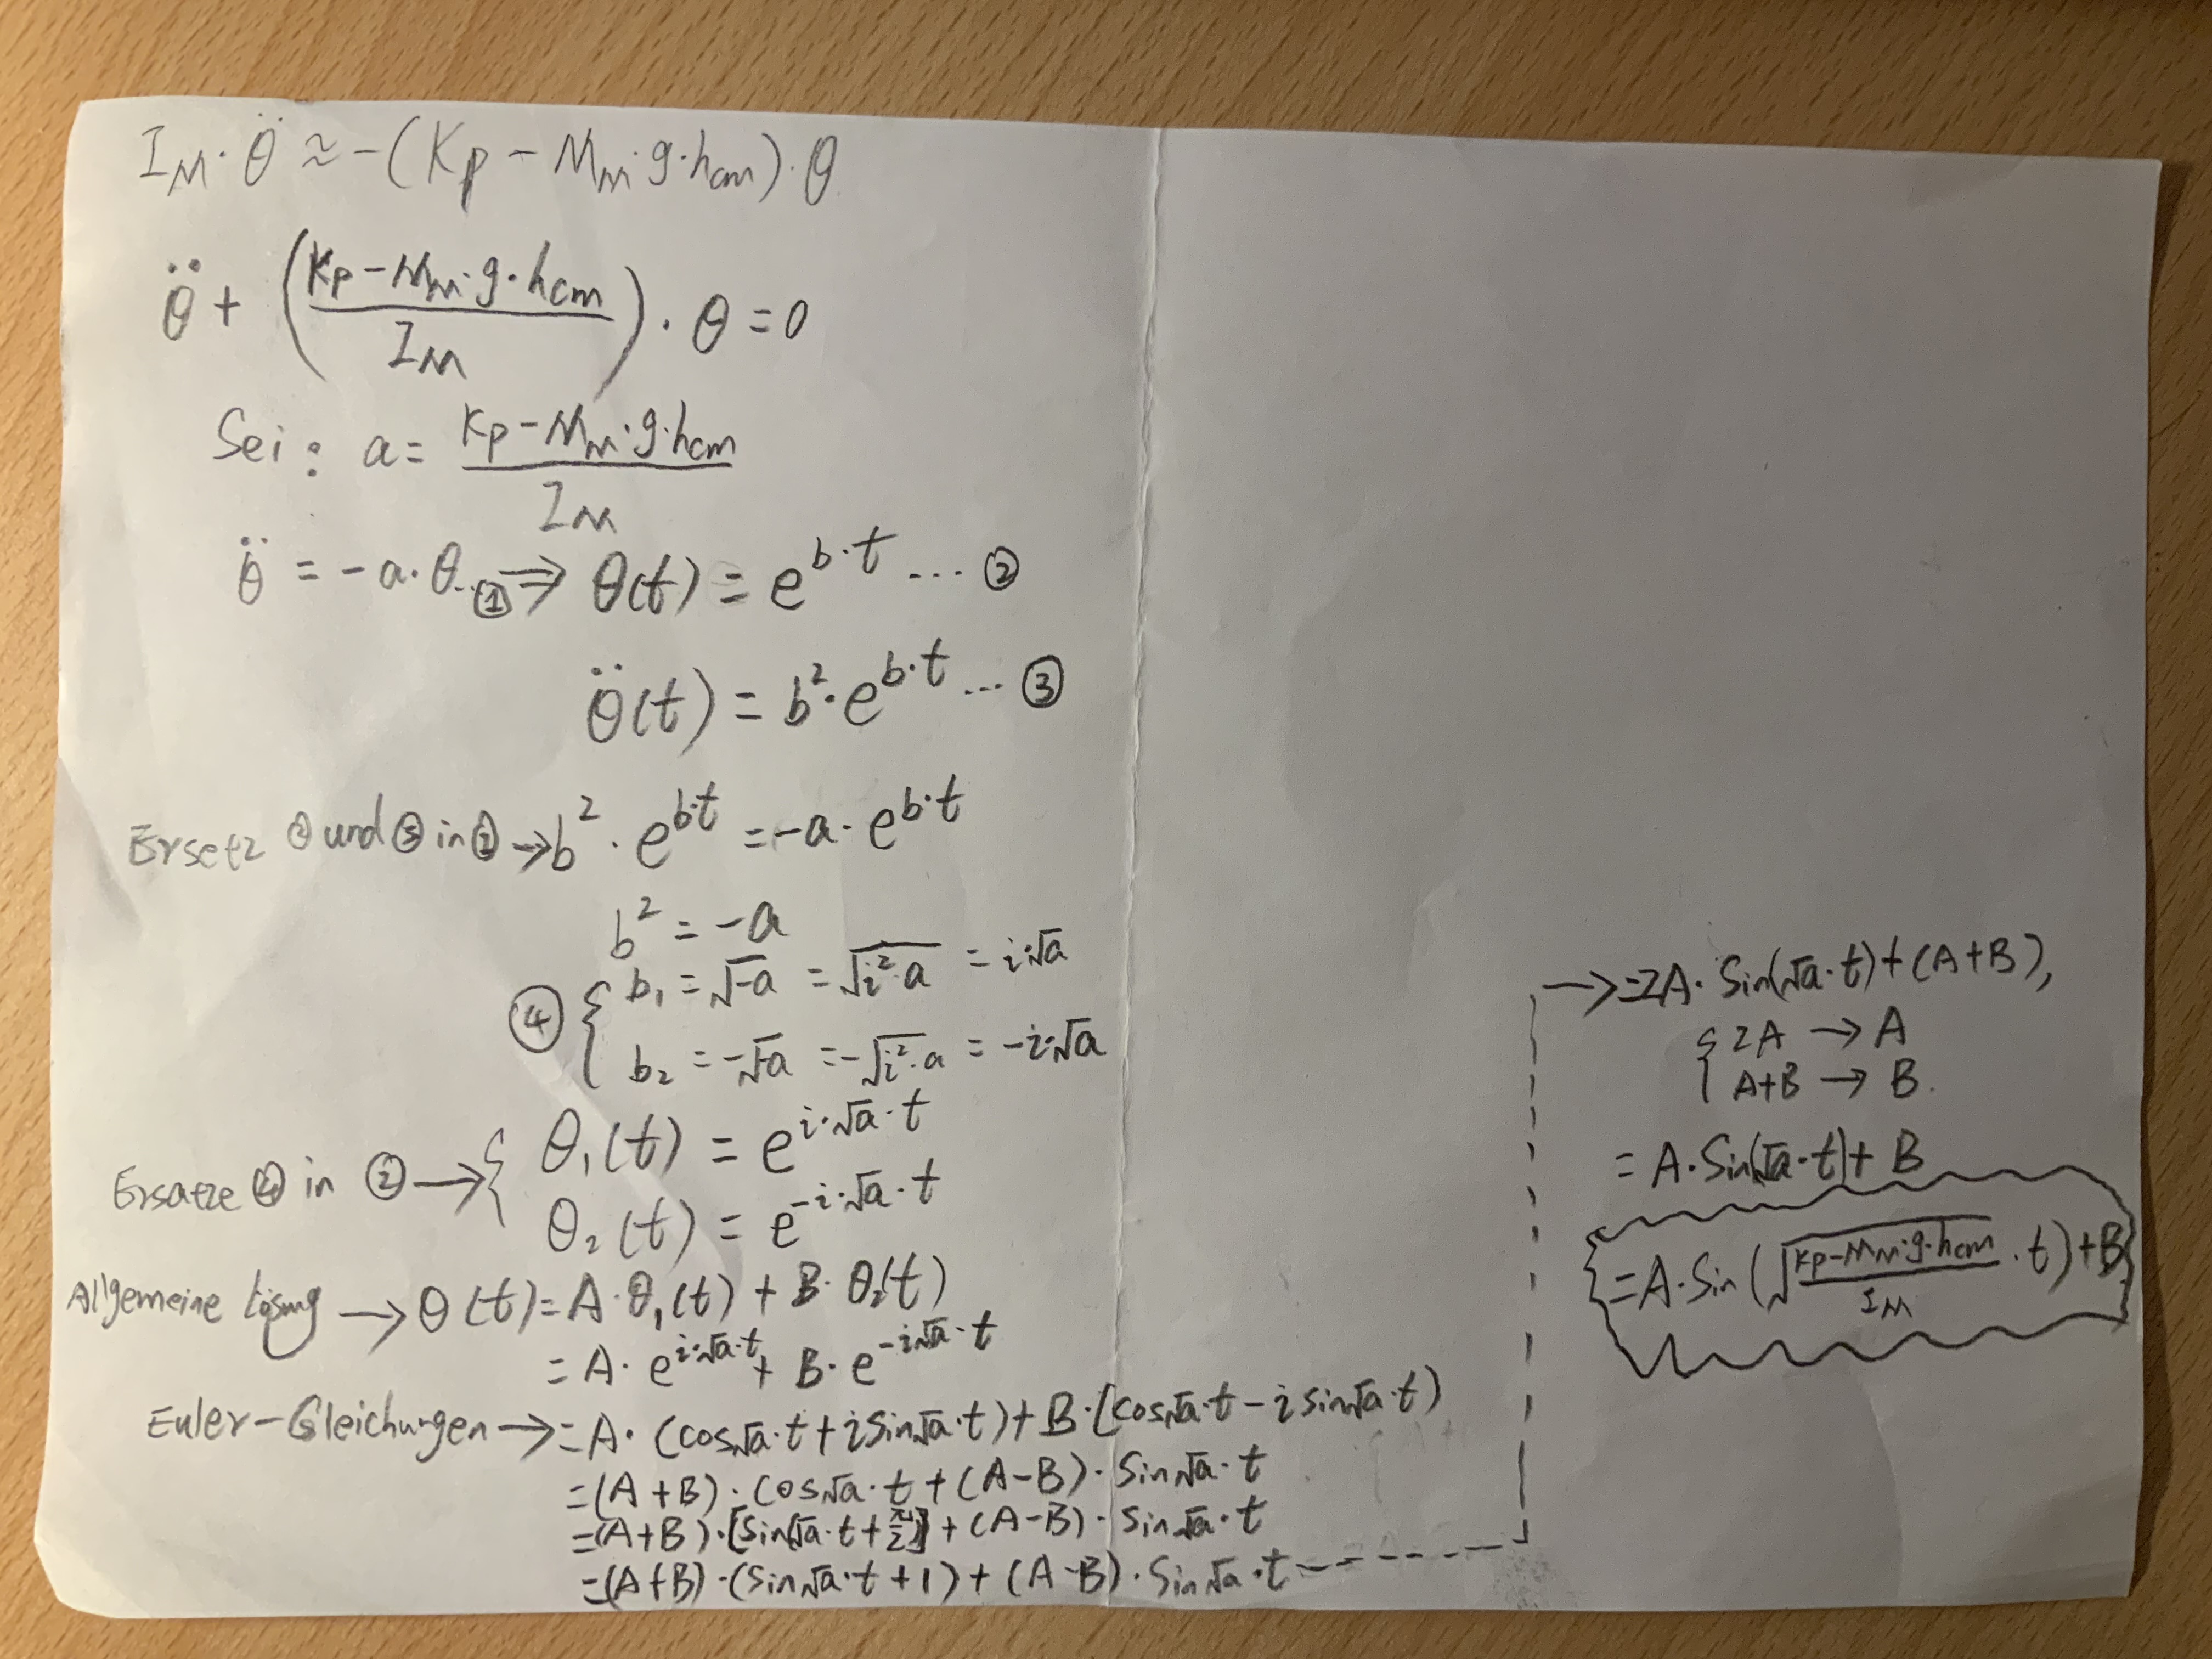 I_M · θ̈ ≈ -(Kp - M_m·g·h_cm)·θ
θ̈ + ((Kp - M_m·g·h_cm)/I_M) · θ = 0
Sei : a = (Kp - M_m·g·h_cm)/I_M
θ̈ = -a·θ ...① ⇒ θ(t) = e^(b·t) ... ②
θ̈(t) = b²·e^(b·t) ... ③
Ersetz ② und ③ in ① → b² · e^(b·t) = -a · e^(b·t)
b² = -a
④ { b₁ = √-a = √(i²·a) = i·√a
b₂ = -√-a = -√(i²·a) = -i·√a
Ersatze ④ in ② → { θ₁(t) = e^(i·√a·t)
θ₂(t) = e^(-i·√a·t)
Allgemeine Lösung → θ(t) = A·θ₁(t) + B·θ₂(t)
= A · e^(i·√a·t) + B · e^(-i·√a·t)
Euler-Gleichungen → = A · (cos√a·t + i sin√a·t) + B · [cos√a·t - i sin√a·t)
= (A+B) · cos√a·t + (A-B) · sin√a·t
= (A+B) · [sin(√a·t + π/2)] + (A-B) · sin√a·t
= (A+B) · (sin√a·t + 1) + (A-B) · sin√a·t
→ = 2A · Sin(√a·t) + (A+B),
{ 2A → A
A+B → B.
= A·Sin(√a·t) + B
= A·Sin(√((Kp - M_m·g·h_cm)/I_M) · t) + B